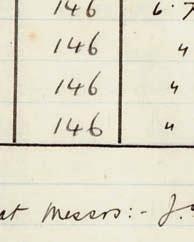 146 6.7
146 "
146 "
146 "
at Messrs:- J.